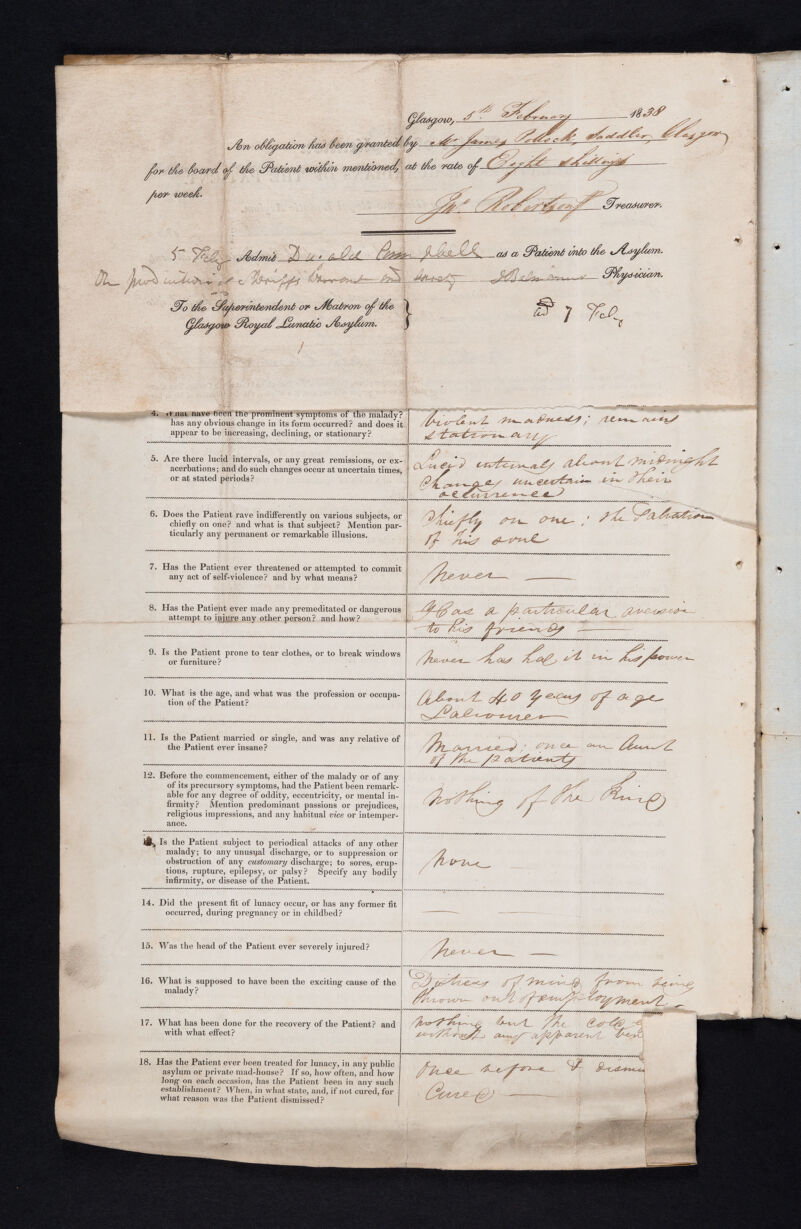 Glasgow, 5th February 1838
An obligation has been granted by Mr. James Pollock, Saddler, Glasgow
for the board of the Patient within mentioned, at the rate of Eight shillings
per week.
Jno. Robertson Treasurer.
5 Feby Admit Donald Campbell as a Patient into the Asylum.
On production of a Sheriffs Warrant and Physician.
To the Superintendent or Matron of the
Glasgow Royal Lunatic Asylum.
ad 7 Feby
4. What have been the prominent symptoms of the malady?
has any obvious change in its form occurred? and does it
appear to be increasing, declining, or stationary?
Violent madness; remains
stationary
5. Are there lucid intervals, or any great remissions, or ex-
acerbations; and do such changes occur at uncertain times,
or at stated periods?
Lucid intervals about midnight
Changes uncertain in their
occurrence
6. Does the Patient rave indifferently on various subjects, or
chiefly on one? and what is that subject? Mention par-
ticularly any permanent or remarkable illusions.
Chiefly on one; the Salvation
of his soul
7. Has the Patient ever threatened or attempted to commit
any act of self-violence? and by what means?
Never —
8. Has the Patient ever made any premeditated or dangerous
attempt to injure any other person? and how?
Has a particular aversion
to his friends —
9. Is the Patient prone to tear clothes, or to break windows
or furniture?
Never has had it in his power
10. What is the age, and what was the profession or occupa-
tion of the Patient?
About 40 years of age
Labourer
11. Is the Patient married or single, and was any relative of
the Patient ever insane?
Married; once an Aunt
of the patients
12. Before the commencement, either of the malady or of any
of its precursory symptoms, had the Patient been remark-
able for any degree of oddity, eccentricity, or mental in-
firmity? Mention predominant passions or prejudices,
religious impressions, and any habitual vice or intemper-
ance.
Nothing of the kind
Is the Patient subject to periodical attacks of any other
malady; to any unusual discharge, or to suppression or
obstruction of any customary discharge; to sores, erup-
tions, rupture, epilepsy, or palsy? Specify any bodily
infirmity, or disease of the Patient.
None
14. Did the present fit of lunacy occur, or has any former fit
occurred, during pregnancy or in childbed?
— —
15. Was the head of the Patient ever severely injured?
Never —
16. What is supposed to have been the exciting cause of the
malady?
Distress of mind from being
thrown out of employment
17. What has been done for the recovery of the Patient? and
with what effect?
Nothing but the cold
without any apparent
18. Has the Patient ever been treated for lunacy, in any public
asylum or private mad-house? If so, how often, and how
long on each occasion, has the Patient been in any such
establishment? When, in what state, and, if not cured, for
what reason was the Patient dismissed?
Once before &
Cured —